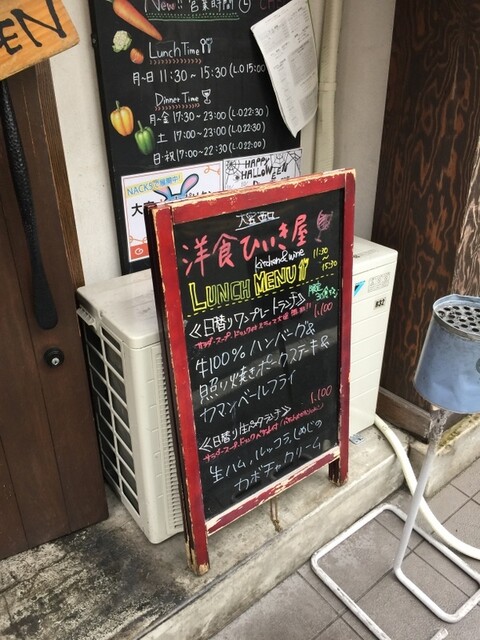 EN
New!! 営業時間
Lunch Time
月~日 11:30~15:30 (L.O 15:00
Dinner Time
月~金 17:30~23:00 (L.O 22:30)
土 17:00~23:00 (L.O 22:30)
日・祝 17:00~22:30 (L.O 22:00)
NACK5で
HAPPY
HALLOWEEN
大宮西口
洋食ひいき屋
kitchen & wine
LUNCH MENU
11:30
~
15:30
≪日替りワンプレートランチ≫
限定
30食
1,100
牛100%ハンバーグ&
照り焼きポークステーキ&
カマンベールフライ
≪日替り生パスタランチ≫
1,100
生ハム、ルッコラ、しめじの
カボチャクリーム